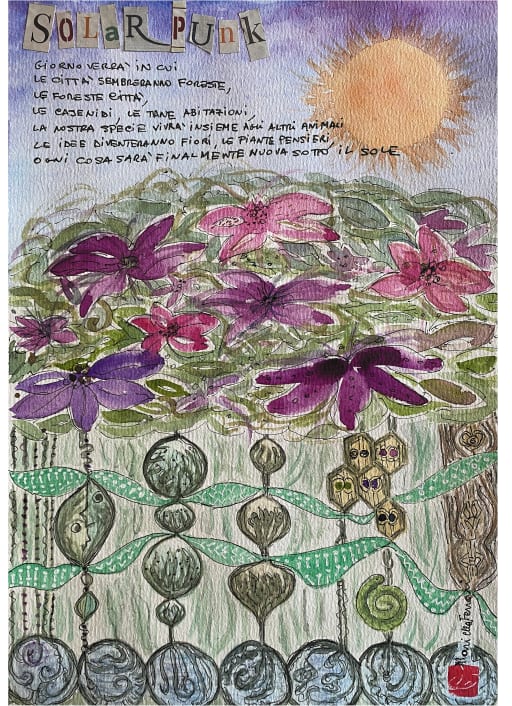 SOLAR PUNK
GIORNO VERRA' IN CUI
LE CITTA' SEMBRERANNO FORESTE,
LE FORESTE CITTA',
LE CASE NIDI, LE TANE ABITAZIONI,
LA NOSTRA SPECIE VIVRA' INSIEME AGLI ALTRI ANIMALI
LE IDEE DIVENTERANNO FIORI, LE PIANTE PENSIERI,
OGNI COSA SARA' FINALMENTE NUOVA SOTTO IL SOLE